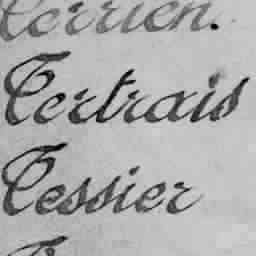 Terrien.
Tertrais
Tessier